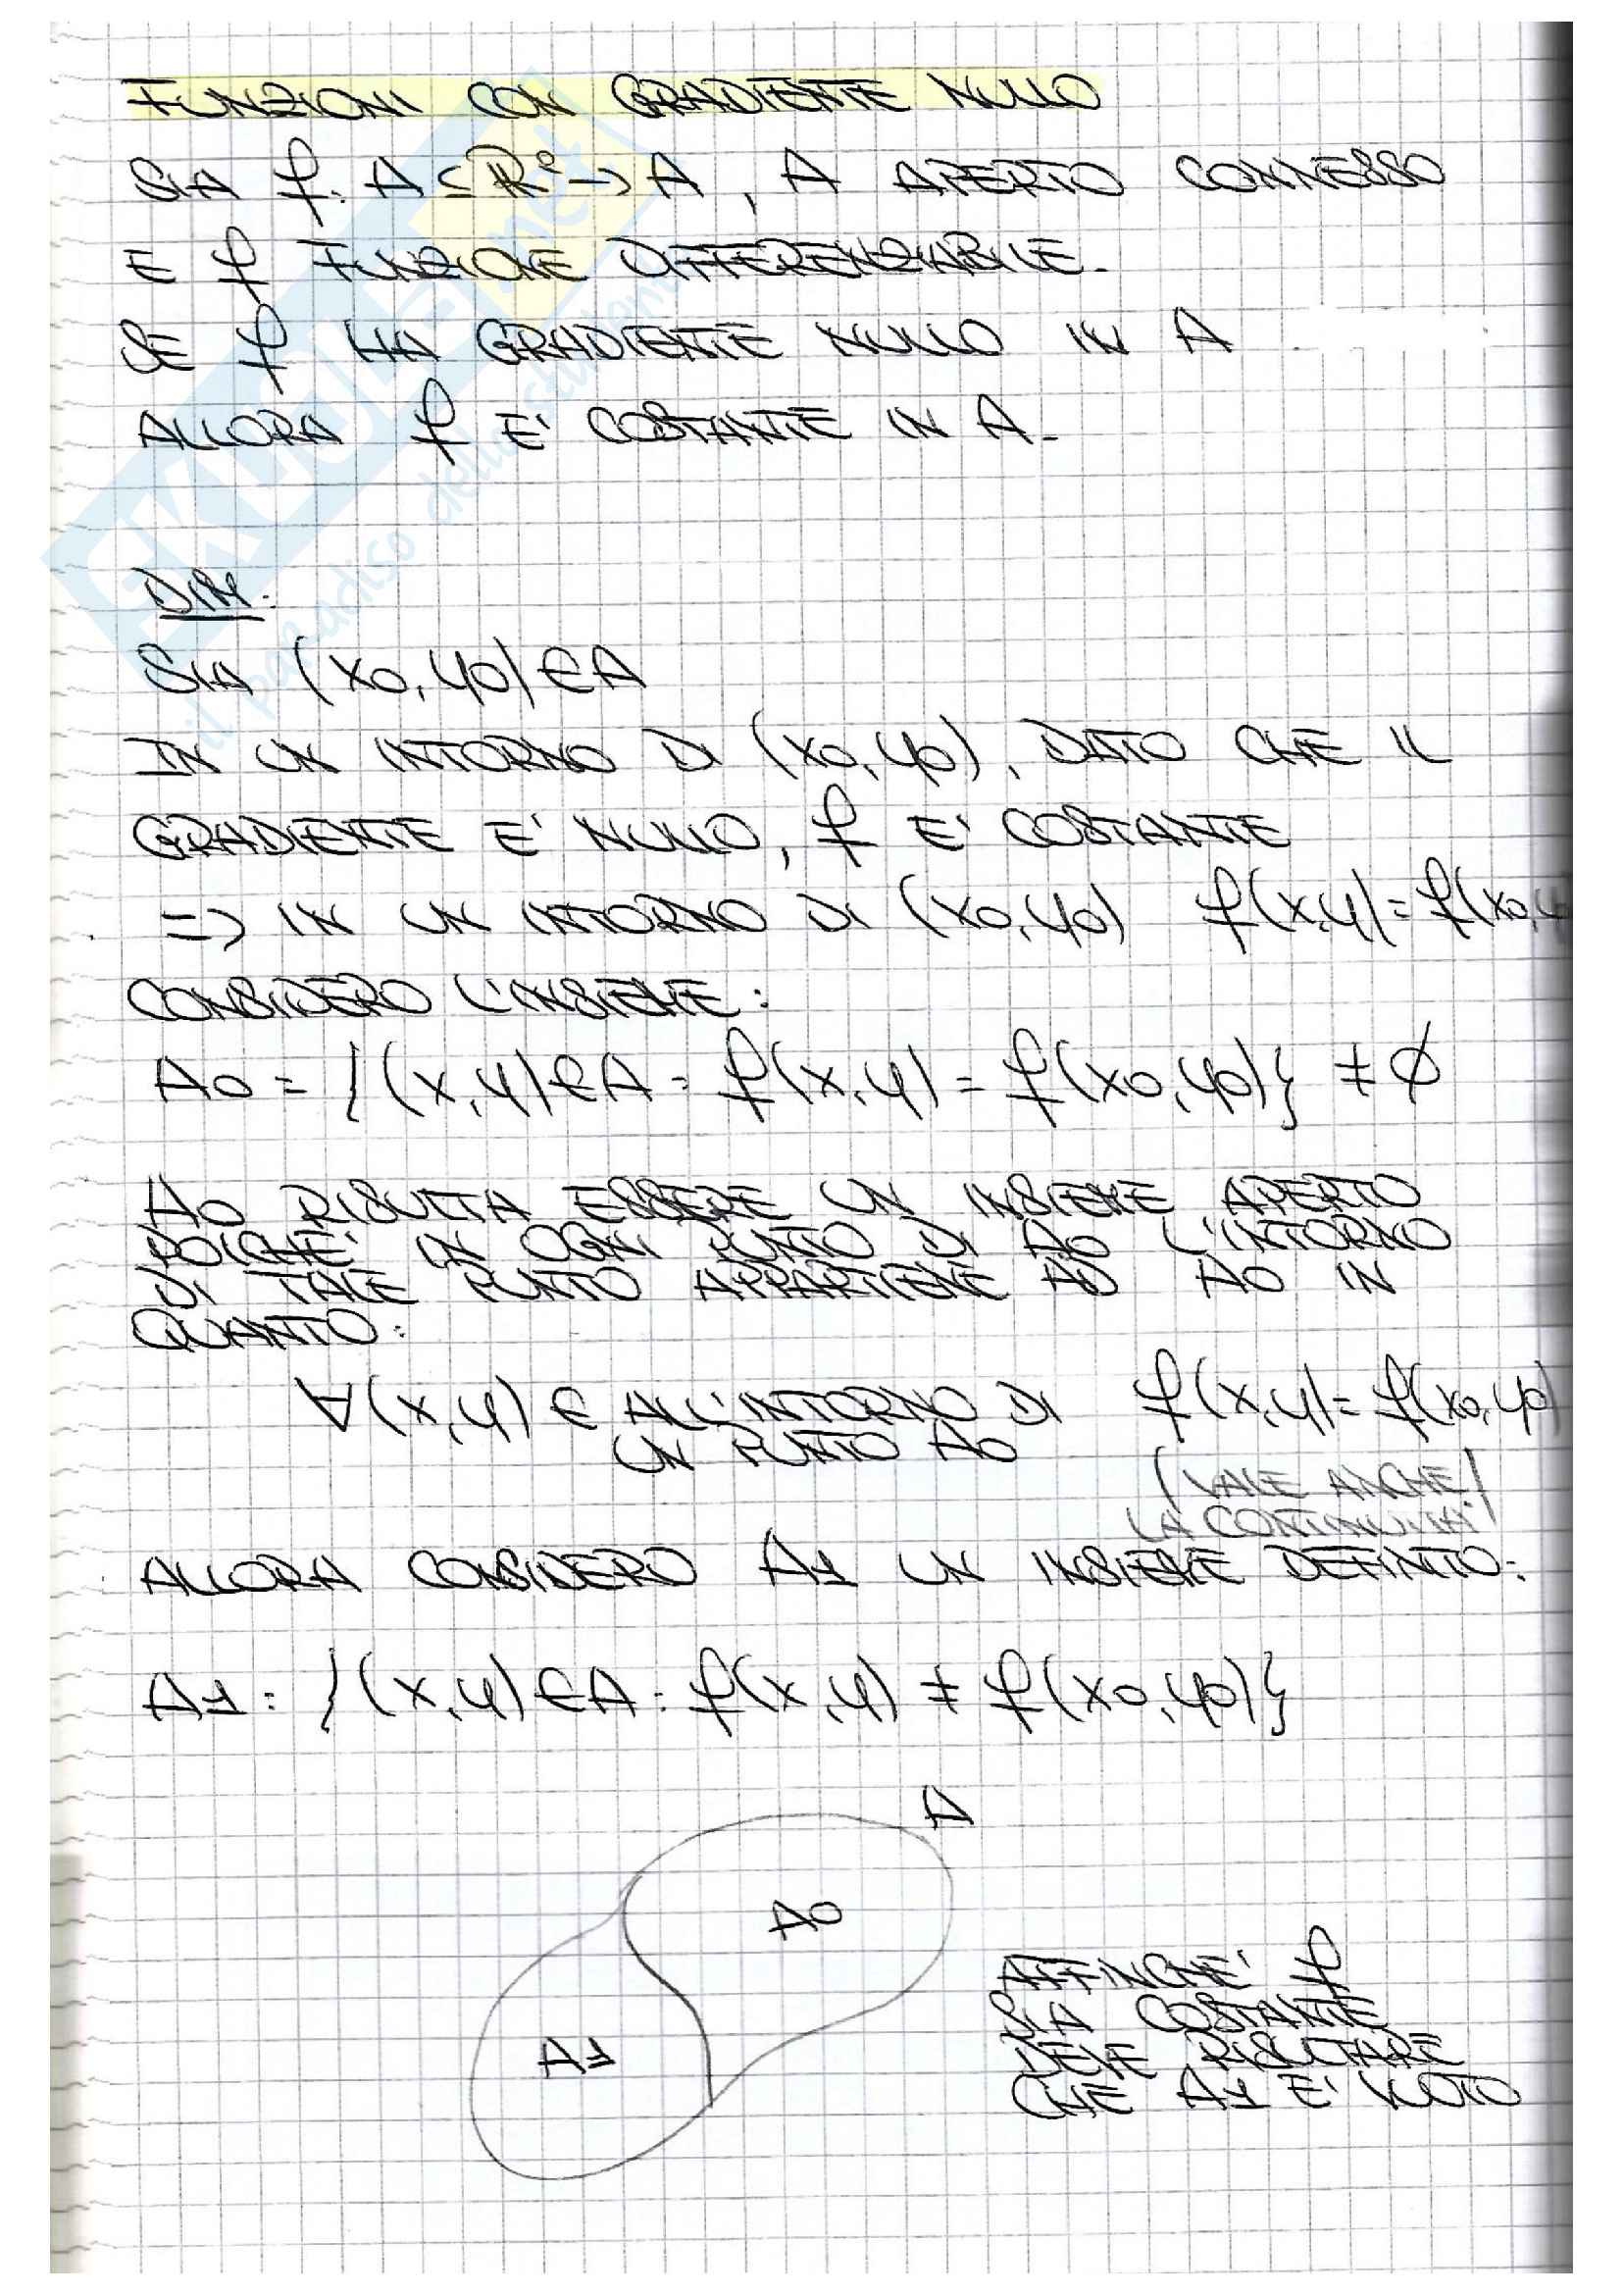 FUNZIONI CON GRADIENTE NULLO
SIA f: A ⊆ R² -> A, A APERTO CONNESSO
E f FUNZIONE DIFFERENZIABILE.
SE f HA GRADIENTE NULLO IN A
ALLORA f E' COSTANTE IN A.
DIM:
SIA (x0, y0) ∈ A
IN UN INTORNO DI (x0, y0), DATO CHE IL
GRADIENTE E' NULLO, f E' COSTANTE
=> IN UN INTORNO DI (x0, y0) f(x,y) = f(x0,y0
CONSIDERO L'INSIEME:
A0 = {(x,y) ∈ A : f(x,y) = f(x0,y0)} ≠ ∅
A0 RISULTA ESSERE UN INSIEME APERTO
POICHE' IN OGNI PUNTO DI A0 L'INTORNO
DI TALE PUNTO APPARTIENE AD A0 IN
QUANTO:
∀(x,y) ∈ ALL'INTORNO DI f(x,y) = f(x0,y0)
UN PUNTO A0
(VALE ANCHE
LA CONTINUITA')
ALLORA CONSIDERO A1 UN INSIEME DEFINITO:
A1: {(x,y) ∈ A : f(x,y) ≠ f(x0,y0)}
A
A0
A1
AFFINCHE' f
SIA COSTANTE
DEVE RISULTARE
CHE A1 E' VUOTO
SKUOLA.net
il paradiso dello studente